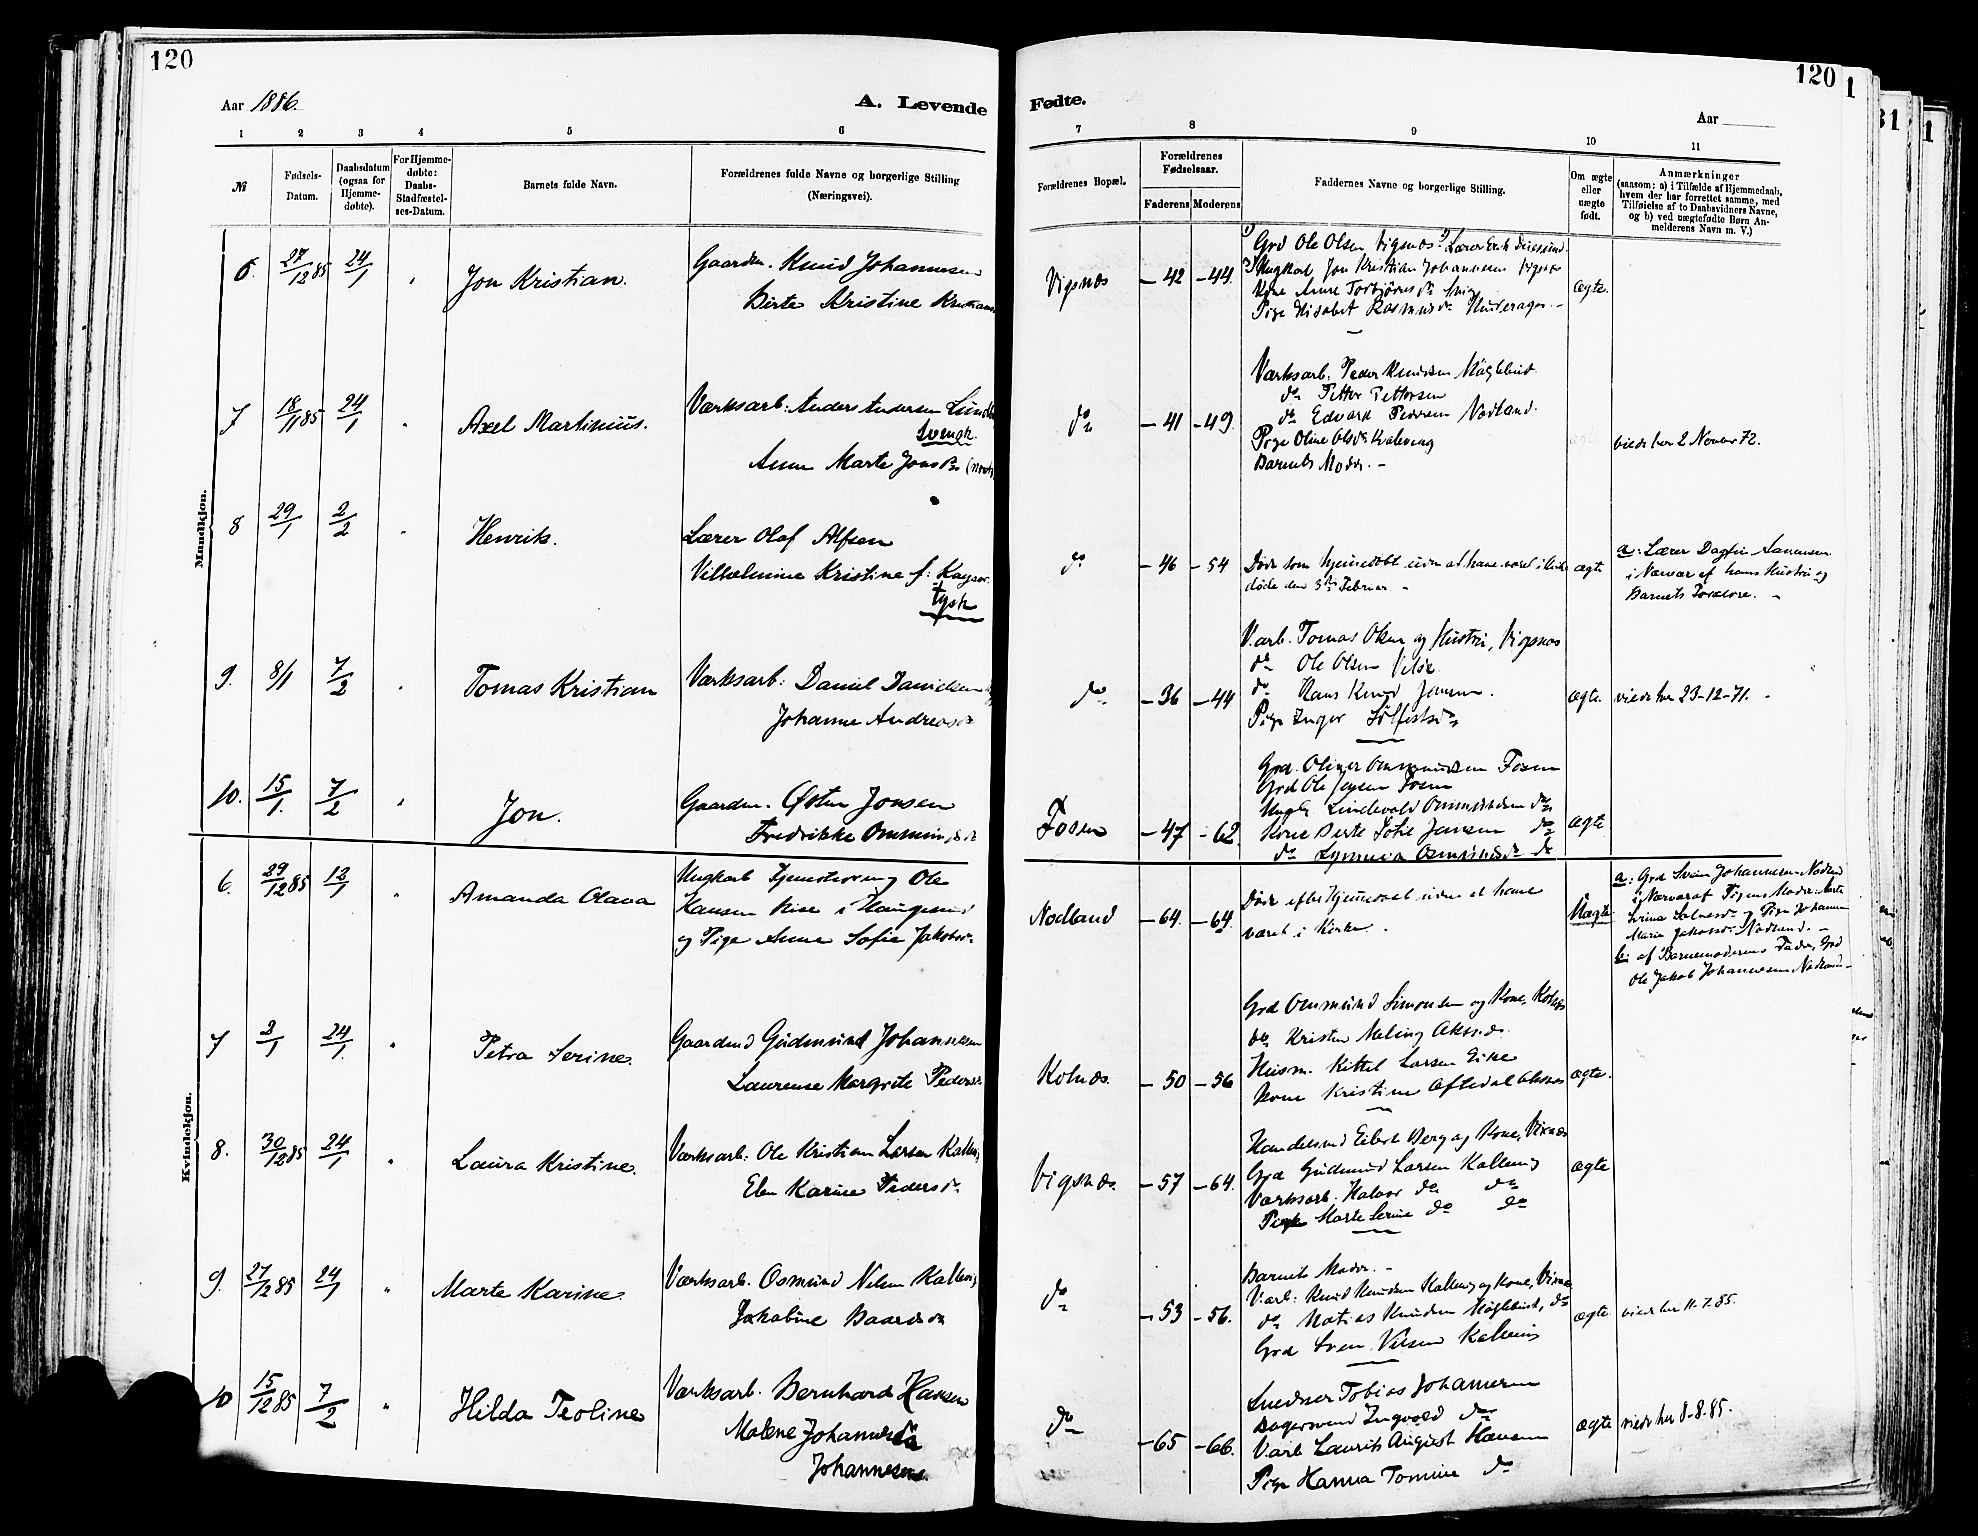 120
120
1
Aar 1886.
A. Levende
Fødte.
Aar
1 2 3 4 5 6
7 8 9 10 11
№
Fødsels-
Datum.
Daabsdatum
(ogsaa for
Hjemme-
døbte).
For Hjemme-
døbte:
Daabs-
Stadfæstel-
ses-Datum.
Barnets fulde Navn.
Forældrenes fulde Navne og borgerlige Stilling
(Næringsvei).
Forældrenes Bopæl.
Forældrenes
Fødselsaar.
Faderens Moderens
Faddernes Navne og borgerlige Stilling.
Om ægte
eller
uægte
født.
Anmærkninger
(saasom: a) i Tilfælde af Hjemmedaab,
hvem der har forrettet samme, med
Tilføielse af to Daabsvidners Navne,
og b) ved uægtefødte Børn An-
melderens Navn m. V.)
Mandkjøn.
6. 27/12 85 24/1 Jon Kristian.
Gaardm. Knud Johannesen
Birte Kristine
Vigsnæs - 42 - 44
Grd Ole Olsen Vigsnæs Lærer
Ungkarl Jon Kristian Johannesen
Kone Anne Torbjørnsdr
Pige Elisabet Rasmusdr
ægte.
7 18/11 85 24/1 Axel Martinius.
Værksarb: Anders Andersen
Svensk
Anne Marte
do - 41 - 49.
Værksarb: Peder Knudsen
do Petter Pettersen
do Edvard Pedersen Nodland.
Pige Oline Olsdr
Barnets Moder. -
viede her 2 Novbr 72.
8 29/1 2/2 Henrik.
Lærer Olaf Alfsen
Vilhelmine Kristine f: Kayser
tysk
do - 46 - 54
Døde som hjemmedøbt uden at have været i Kirke
døde den 3die Februar -
ægte
a: Lærer Dagfin Aanensen
i Nærvær af hans Hustru og
Barnets Forældre. -
9. 8/1 7/2 Tomas Kristian
Værksarb: Daniel Danielsen
Johanne Andreasdr
do - 36 - 44
V.arb. Tomas Olsen og Hustru, Vigsnæs
do Ole Olsen
do Hans Knud Jensen.
Pige Inger
ægte. viede her 23-12-71. -
10. 15/1. 7/2 Jon.
Gaardm. Østen Jonsen
Fredrikke Ommundsdr
Fosen - 47 - 62.
Grd. Oliver Ommundsen Fosen
Grd Ole Jensen Fosen
Ungk Lindevald Ommundsen do
Kone Berte Sofie Jansen do
do
ægte
Kvindekjøn.
6. 29/12 85 12/1 Amanda Olava
Ungkarl Tjenestedreng Ole
Hansen Rise i Haugesund
og Pige Anne Sofie Jakobsdr.
Nodland - 64. - 64.
Døde efter Hjemmedaab uden at have
været i Kirke. -
Uægte
a: Grd Svein Johannesen Nodland
i Nærvær af Pigens Moder: Marte
og Pige Johanne
Marie Jakobsdr. Nodland. -
b: af Barnemoderens Fader, Grd
Ole Jakob Johannesen Nodland -
7 2/1 24/1. Petra Serine.
Gaardmd Gudmund Johannesen
Laurense Margrete Pedersdr
Kolnæs. - 50 - 56
Grd Ommund Simonsen og Kone, Kolnæs
do Kristen Meling Aksnæs.
Husm. Kittel Larsen Eike
Kone Kristine
ægte.
8. 30/12 85 24/1 Laura Kristine.
Værksarb: Ole Kristian Larsen
Elen Karine Pedersdr
Vigsnæs. - 57 - 64.
Handelsmd Eilert Berg og Kone, Visnæs
Grd Gudmund Larsen Kallevig
Værksarb. Halvor do do
Pige Marte Serine do do
ægte
9. 27/12 85 24/1 Marte Karine.
Værksarb. Osmund Nilsen Kallevig
Jakobine Baardsdr
do - 53 - 56.
Barnets Moder. -
V.arb: Knud Knudsen Kallevig og Kone, Visnæs
do Matias Knudsen
Grd Sven Nilsen Kallevig
ægte viede her 11-7-85.
10 15/12 85 7/2 Hilda Teoline
Værksarb. Bernhard Hansen
Malene Johannesdr
Johannesen.
do - 65 - 66.
Snedker Tobias Johannesen
Bagersvend Ingvald do
V.arb Laurits August Hansen
Pige Hanna Tomine do
ægte viede her 8-8-85.